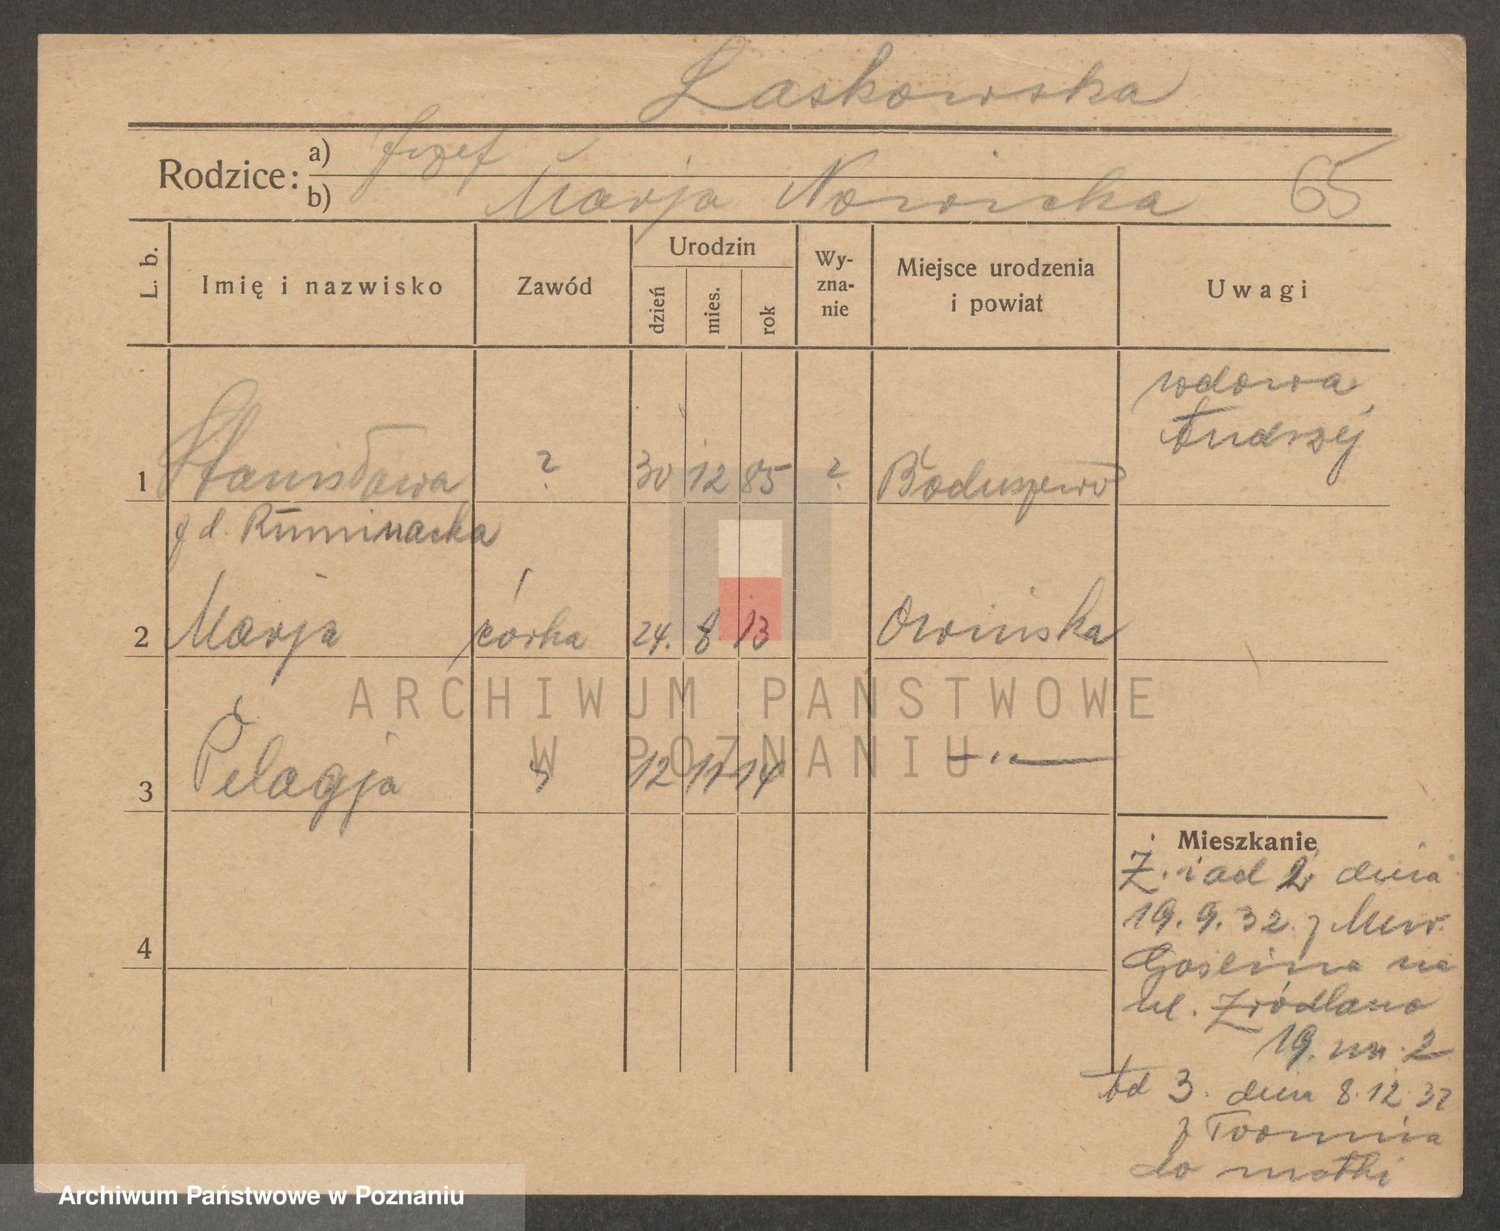 Laskowska
Rodzice: a) Józef
b) Marja Nowicka 65
L. b. Imię i nazwisko Zawód Urodzin dzień mies. rok Wyznanie Miejsce urodzenia i powiat Uwagi
wdowa
Andrzej
1 Stanisława ? 30 12 85 ? Boduszewo
z d. Ruminacka
2 Marja córka 24. 8 13 Owińska
ARCHIWUM PAŃSTWOWE
W POZNANIU
3 Pelagja " 12 11 14 — " —
Mieszkanie
Ż. i ad 2 dnia
19.9.32. z Mur.
Goślina na
ul. Źródlana
19. m. 2
4
Ad 3. dnia 8.12.32
z
do matki
Archiwum Państwowe w Poznaniu